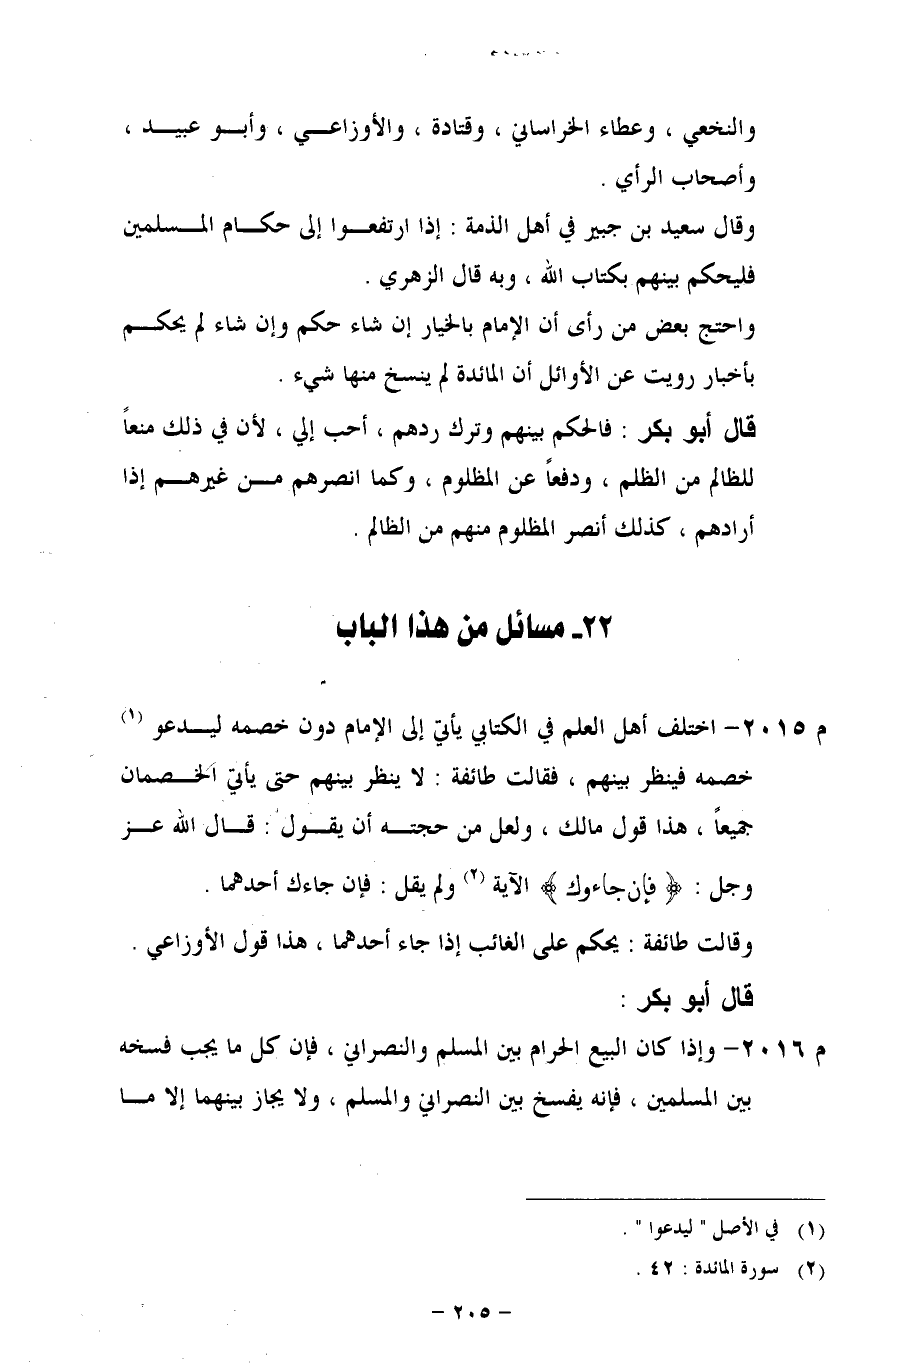 والنخعي ، وعطاء الخراساني ، وقتادة ، والأوزاعـــي ، وأبـــو عبيـــد ،
وأصحاب الرأي .
وقال سعيد بن جبير في أهل الذمة : إذا ارتفعـــوا إلى حكـــام المـــسلمين
فليحكم بينهم بكتاب الله ، وبه قال الزهري .
واحتج بعض من رأى أن الإمام بالخيار إن شاء حكم وإن شاء لم يحكـــم
بأخبار رويت عن الأوائل أن المائدة لم ينسخ منها شيء .
قال أبو بكر : فالحكم بينهم وترك ردهم ، أحب إلي ، لأن في ذلك منعاً
للظالم من الظلم ، ودفعاً عن المظلوم ، وكما انصرهم مـــن غيرهـــم إذا
أرادهم ، كذلك أنصر المظلوم منهم من الظالم .
٢٢ـ مسائل من هذا الباب
م ٢٠١٥– اختلف أهل العلم في الكتابي يأتي إلى الإمام دون خصمه ليـــدعو (١)
خصمه فينظر بينهم ، فقالت طائفة : لا ينظر بينهم حتى يأتي الخـــصمان
جميعاً ، هذا قول مالك ، ولعل من حجتـــه أن يقـــول : قـــال الله عـــز
وجل : ﴿ فإن جاءوك ﴾ الآية (٢) ولم يقل : فإن جاءك أحدهما .
وقالت طائفة : يحكم على الغائب إذا جاء أحدهما ، هذا قول الأوزاعي .
قال أبو بكر :
م ٢٠١٦– وإذا كان البيع الحرام بين المسلم والنصراني ، فإن كل ما يجب فسخه
بين المسلمين ، فإنه يفسخ بين النصراني والمسلم ، ولا يجاز بينهما إلا مـــا
(١) في الأصل " ليدعوا " .
(٢) سورة المائدة : ٤٢ .
– ٢٠٥ –